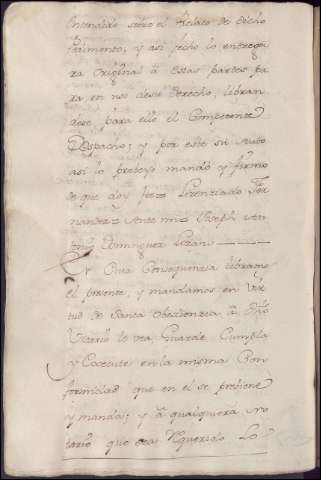 entendido sobre el Relato de dicho
Pedimento, y asi fecho lo entrega-
ra original â estas partes pa
ra en uso desu derecho, libran
dose para ello el Competente
Despacho; y por este su Auto
asi lo proveyó mandó y firmó
de que doy feeː Lizenciado Fer
nandezː Ante miː Joseph An-
tonio Dominguez Lozano
En Cuia Consequenzia libramos
el presente, y mandamos en Vir
tud de Santa Obedienzia â dho
Vicario lo vea, Guarde, Cumpla
y Execute en la misma Con
formidad que en el se previene
y manda; y â qualquiera no
tario que sea Requerido Lo